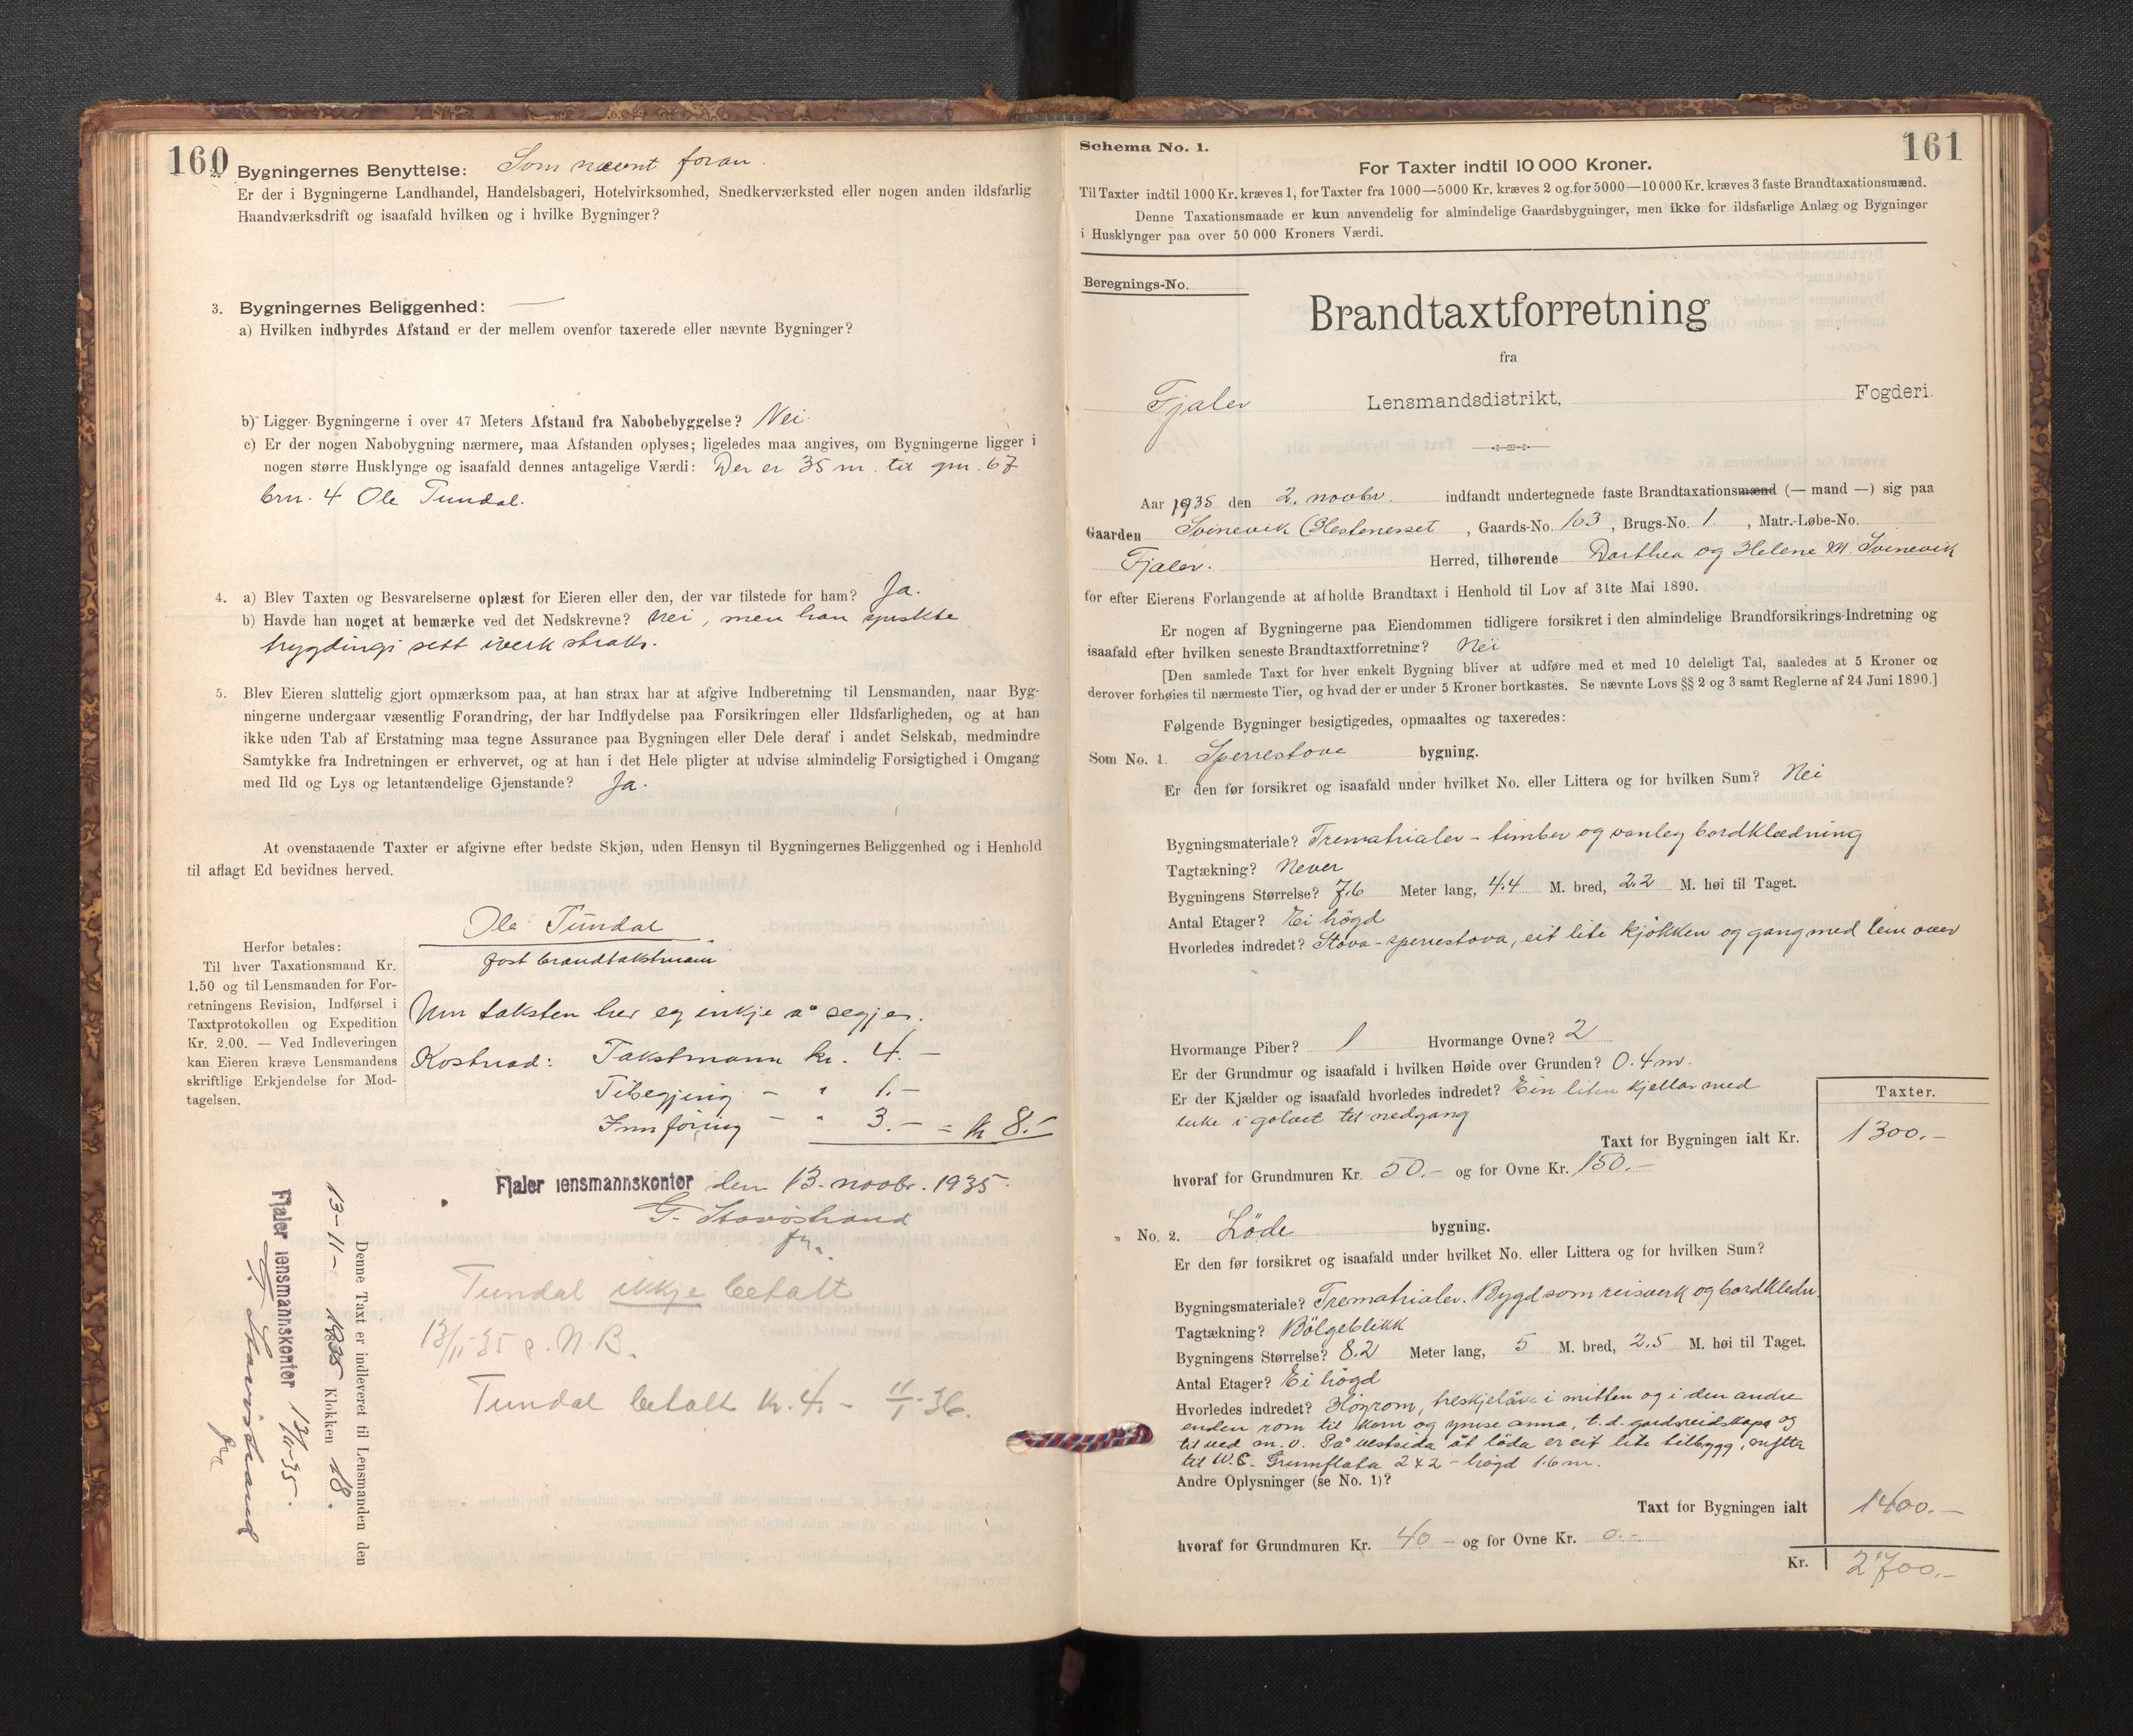 160
2. Bygningernes Benyttelse: Som nævnt foran.
Er der i Bygningerne Landhandel, Handelsbageri, Hotelvirksomhed, Snedkerværksted eller nogen anden ildsfarlig
Haandværksdrift og isaafald hvilken og i hvilke Bygninger?
3. Bygningernes Beliggenhed: —
a) Hvilken indbyrdes Afstand er der mellem ovenfor taxerede eller nævnte Bygninger?
b) Ligger Bygningerne i over 47 Meters Afstand fra Nabobebyggelse? Nei.
c) Er der nogen Nabobygning nærmere, maa Afstanden oplyses; ligeledes maa angives, om Bygningerne ligger i
nogen større Husklynge og isaafald dennes antagelige Værdi: Der er 35 m. til gnr. 67
brn. 4 Ole Tundal.
4. a) Blev Taxten og Besvarelserne oplæst for Eieren eller den, der var tilstede for ham? Ja.
b) Havde han noget at bemærke ved det Nedskrevne? Nei, men han ynskte
trygdingi sett iverk straks.
5. Blev Eieren sluttelig gjort opmærksom paa, at han strax har at afgive Indberetning til Lensmanden, naar Byg-
ningerne undergaar væsentlig Forandring, der har Indflydelse paa Forsikringen eller Ildsfarligheden, og at han
ikke uden Tab af Erstatning maa tegne Assurance paa Bygningen eller Dele deraf i andet Selskab, medmindre
Samtykke fra Indretningen er erhvervet, og at han i det Hele pligter at udvise almindelig Forsigtighed i Omgang
med Ild og Lys og letantændelige Gjenstande? Ja.
At ovenstaaende Taxter er afgivne efter bedste Skjøn, uden Hensyn til Bygningernes Beliggenhed og i Henhold
til aflagt Ed bevidnes herved.
Ole Tundal
fast brandtakstmann
Herfor betales:
Til hver Taxationsmand Kr.
1.50 og til Lensmanden for For-
retningens Revision, Indførsel i
Taxtprotokollen og Expedition
Kr. 2.00. — Ved Indleveringen
kan Eieren kræve Lensmandens
skriftlige Erkjendelse for Mod-
tagelsen.
Um taksten her eg inkje å segja.
Kostnad: Takstmann kr. 4.-
Tilsegjing - " 1.-
Innføring - " 3.- = kr 8.-
Fjaler lensmannskontor den 13. novbr. 1935.
G. Stavøstrand
fm.
Tundal ikkje betalt
13/11-35 N.B.
Tundal betalt kr. 4.- 11/1-36.
Denne Taxt er indleveret til Lensmanden den
13-11- 1935 Klokken 18.
Fjaler lensmannskontor 13/11-35.
G. Stavøstrand
fm
161
Schema No. 1.
For Taxter indtil 10 000 Kroner.
Til Taxter indtil 1000 Kr. kræves 1, for Taxter fra 1000—5000 Kr. kræves 2 og for 5000—10 000 Kr. kræves 3 faste Brandtaxationsmænd.
Denne Taxationsmaade er kun anvendelig for almindelige Gaardsbygninger, men ikke for ildsfarlige Anlæg og Bygninger
i Husklynger paa over 50 000 Kroners Værdi.
Beregnings-No.
Brandtaxtforretning
fra
Fjaler Lensmandsdistrikt, Fogderi
Aar 1935 den 2. novbr. indfandt undertegnede faste Brandtaxationsmænd (— mand —) sig paa
Gaarden Svinevik (Hestenesset, Gaards-No. 103, Brugs-No. 1., Matr.-Løbe-No.
Fjaler. Herred, tilhørende Dorthea og Helene M. Svinevik
for efter Eierens Forlangende at afholde Brandtaxt i Henhold til Lov af 31te Mai 1890.
Er nogen af Bygningerne paa Eiendommen tidligere forsikret i den almindelige Brandforsikrings-Indretning og
isaafald efter hvilken seneste Brandtaxtforretning? Nei
[Den samlede Taxt for hver enkelt Bygning bliver at udføre med et med 10 deleligt Tal, saaledes at 5 Kroner og
derover forhøies til nærmeste Tier, og hvad der er under 5 Kroner bortkastes. Se nævnte Lovs §§ 2 og 3 samt Reglerne af 24 Juni 1890.]
Følgende Bygninger besigtigedes, opmaaltes og taxeredes:
Som No. 1. Sperrestove bygning.
Er den før forsikret og isaafald under hvilket No. eller Littera og for hvilken Sum? Nei
Bygningsmateriale? Trematrialer - timber og vanleg bordklædning
Tagtækning? Never
Bygningens Størrelse? 7.6 Meter lang, 4.4 M. bred, 2.2 M. høi til Taget.
Antal Etager? Ei högd
Hvorledes indredet? Stova - sperrestova, eit lite kjökken og gang med lem over
Hvormange Piber? 1 Hvormange Ovne? 2
Er der Grundmur og isaafald i hvilken Høide over Grunden? 0.4 m.
Er der Kjælder og isaafald hvorledes indredet? Ein liten kjellar med
luke i golvet til nedgang
Taxter.
Taxt for Bygningen ialt Kr. 1300.-
hvoraf for Grundmuren Kr. 50.- og for Ovne Kr. 150.-
" No. 2. Löde bygning.
Er den før forsikret og isaafald under hvilket No. eller Littera og for hvilken Sum?
Bygningsmateriale? Trematrialer. Bygd som reisverk og bordkledn.
Tagtækning? Bölgeblikk
Bygningens Størrelse? 8.2 Meter lang, 5 M. bred, 2.5 M. høi til Taget.
Antal Etager? Ei högd
Hvorledes indredet? Höyrom, treskjelåve i mitten og i den andre
enden rom til korn og ymse anna, t.d. gardsreidskapa og
til ved m.v. På vestsida åt löda er eit lite tilbygg, nytta
til W.C. Grunnflata 2 x 2 - högd 1.6 m.
Andre Oplysninger (se No. 1)?
Taxt for Bygningen ialt 1400.-
hvoraf for Grundmuren Kr. 40 - og for Ovne Kr. 0.-
Kr. 2700.-